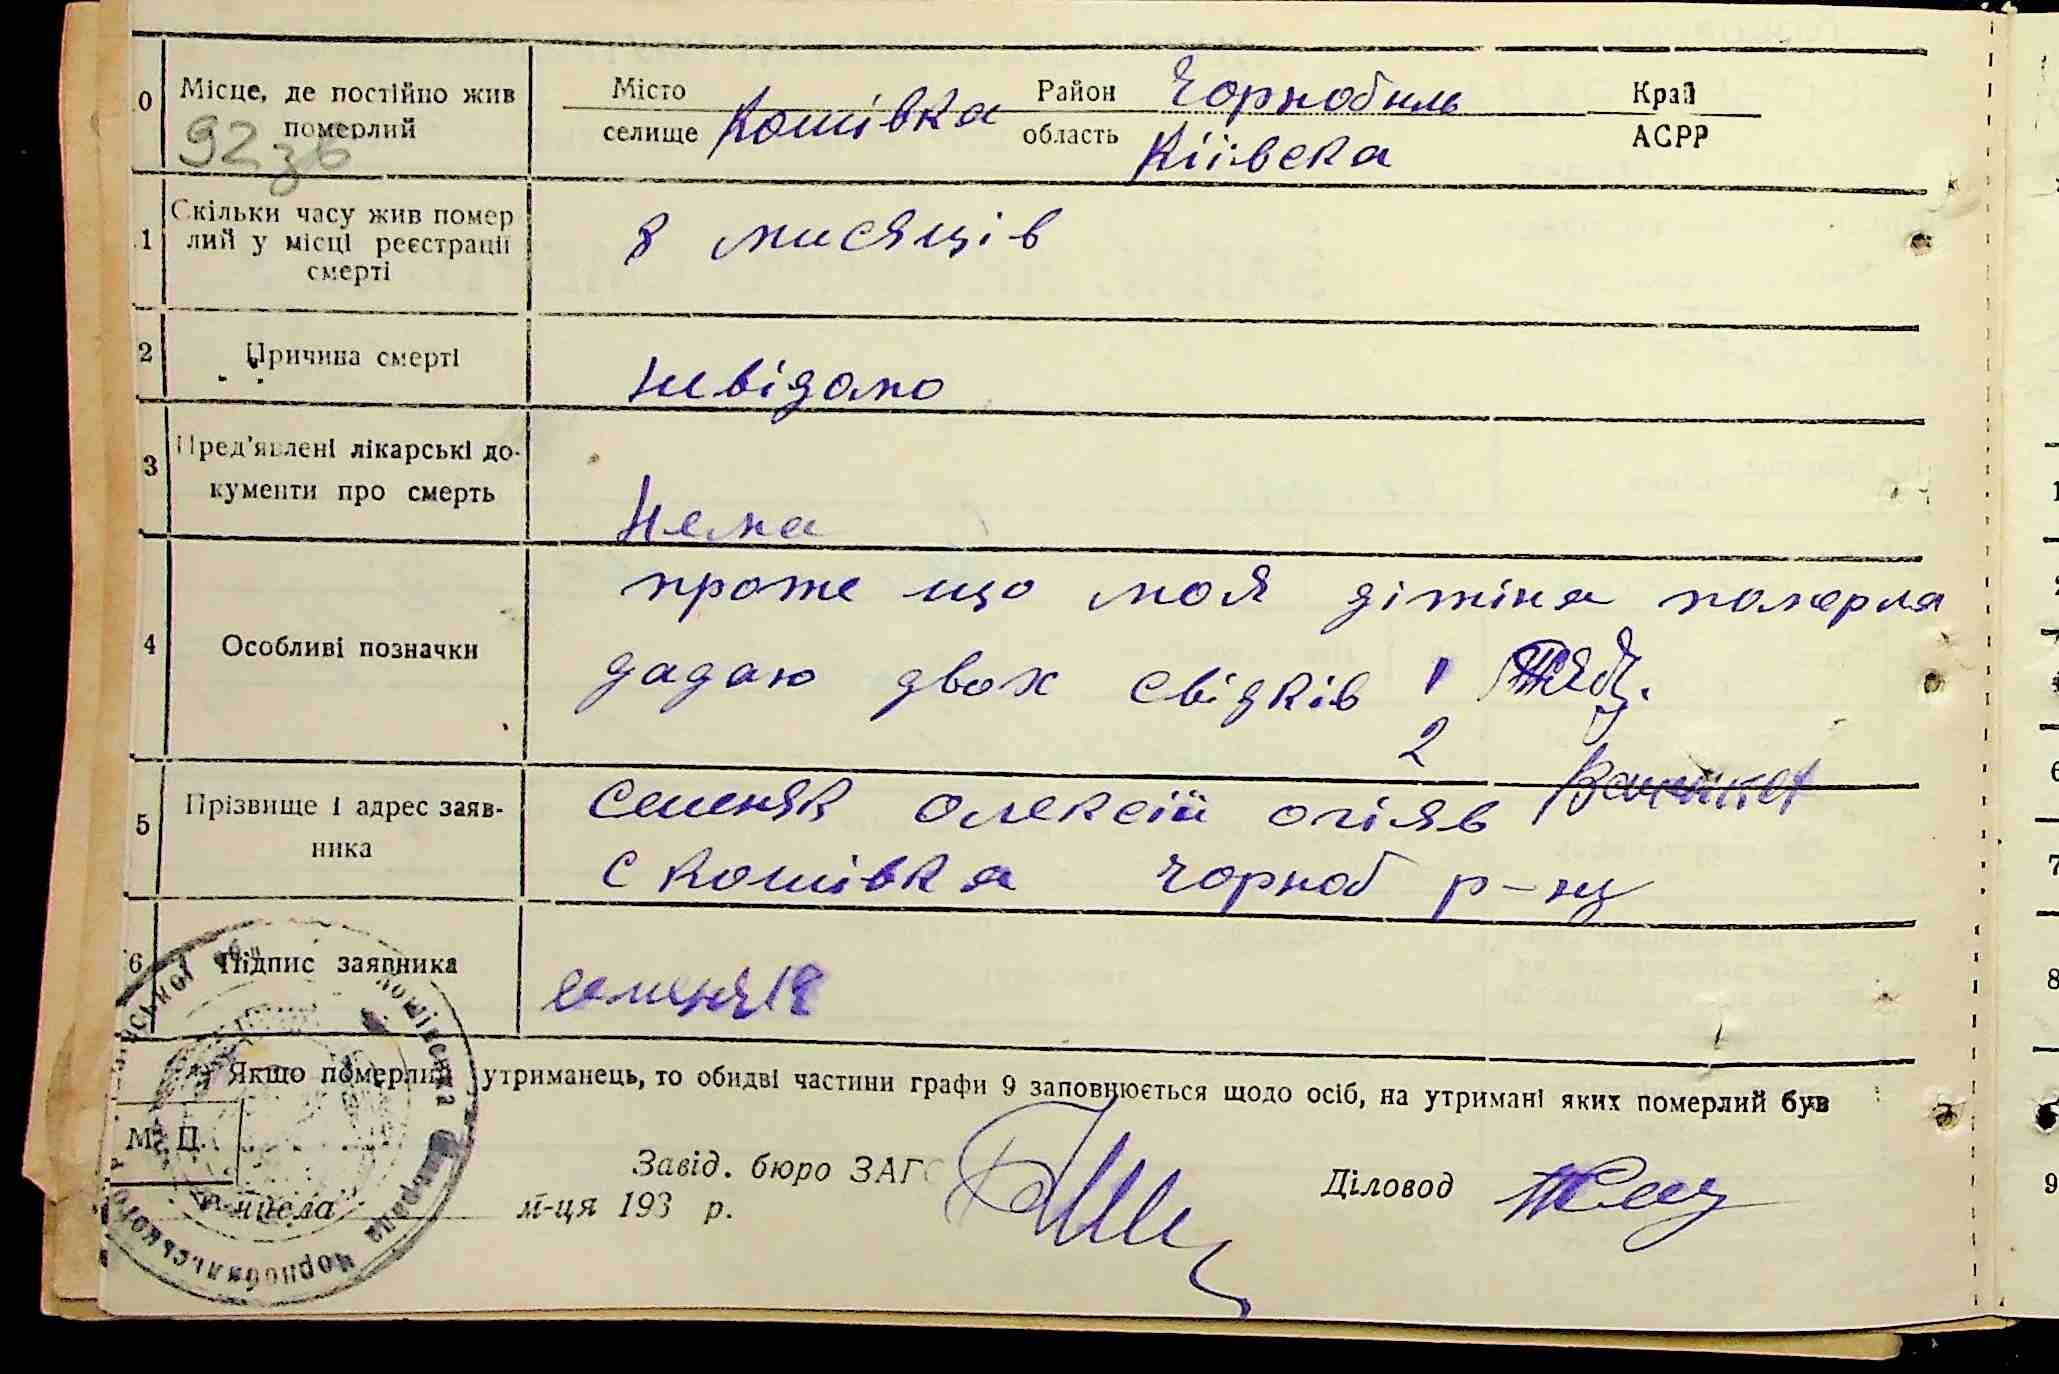 0 Місце, де постійно жив померлий Місто селище Кошівка Район Чорнобиль область Київска Край АСРР
92 зв
1 Скільки часу жив помер
лий у місці реєстрації
смерті
8 мисяців
2 Причина смерті
невідомо
3 Пред'явлені лікарські до-
кументи про смерть
Нема
4 Особливі позначки
проте що моя дітіна померла
дадаю двох свідків 1
2
5 Прізвище і адрес заяв-
ника
Семеняк Олексій
с Кошівка Чорноб р-ну
6 Підпис заявника
Семеняк
Якщо померлий утриманець, то обидві частини графи 9 заповнюється щодо осіб, на утримані яких померлий був
М. П.
Завід. бюро ЗАГС Діловод
м-ця 193 р.
Кошівська Чорнобильського